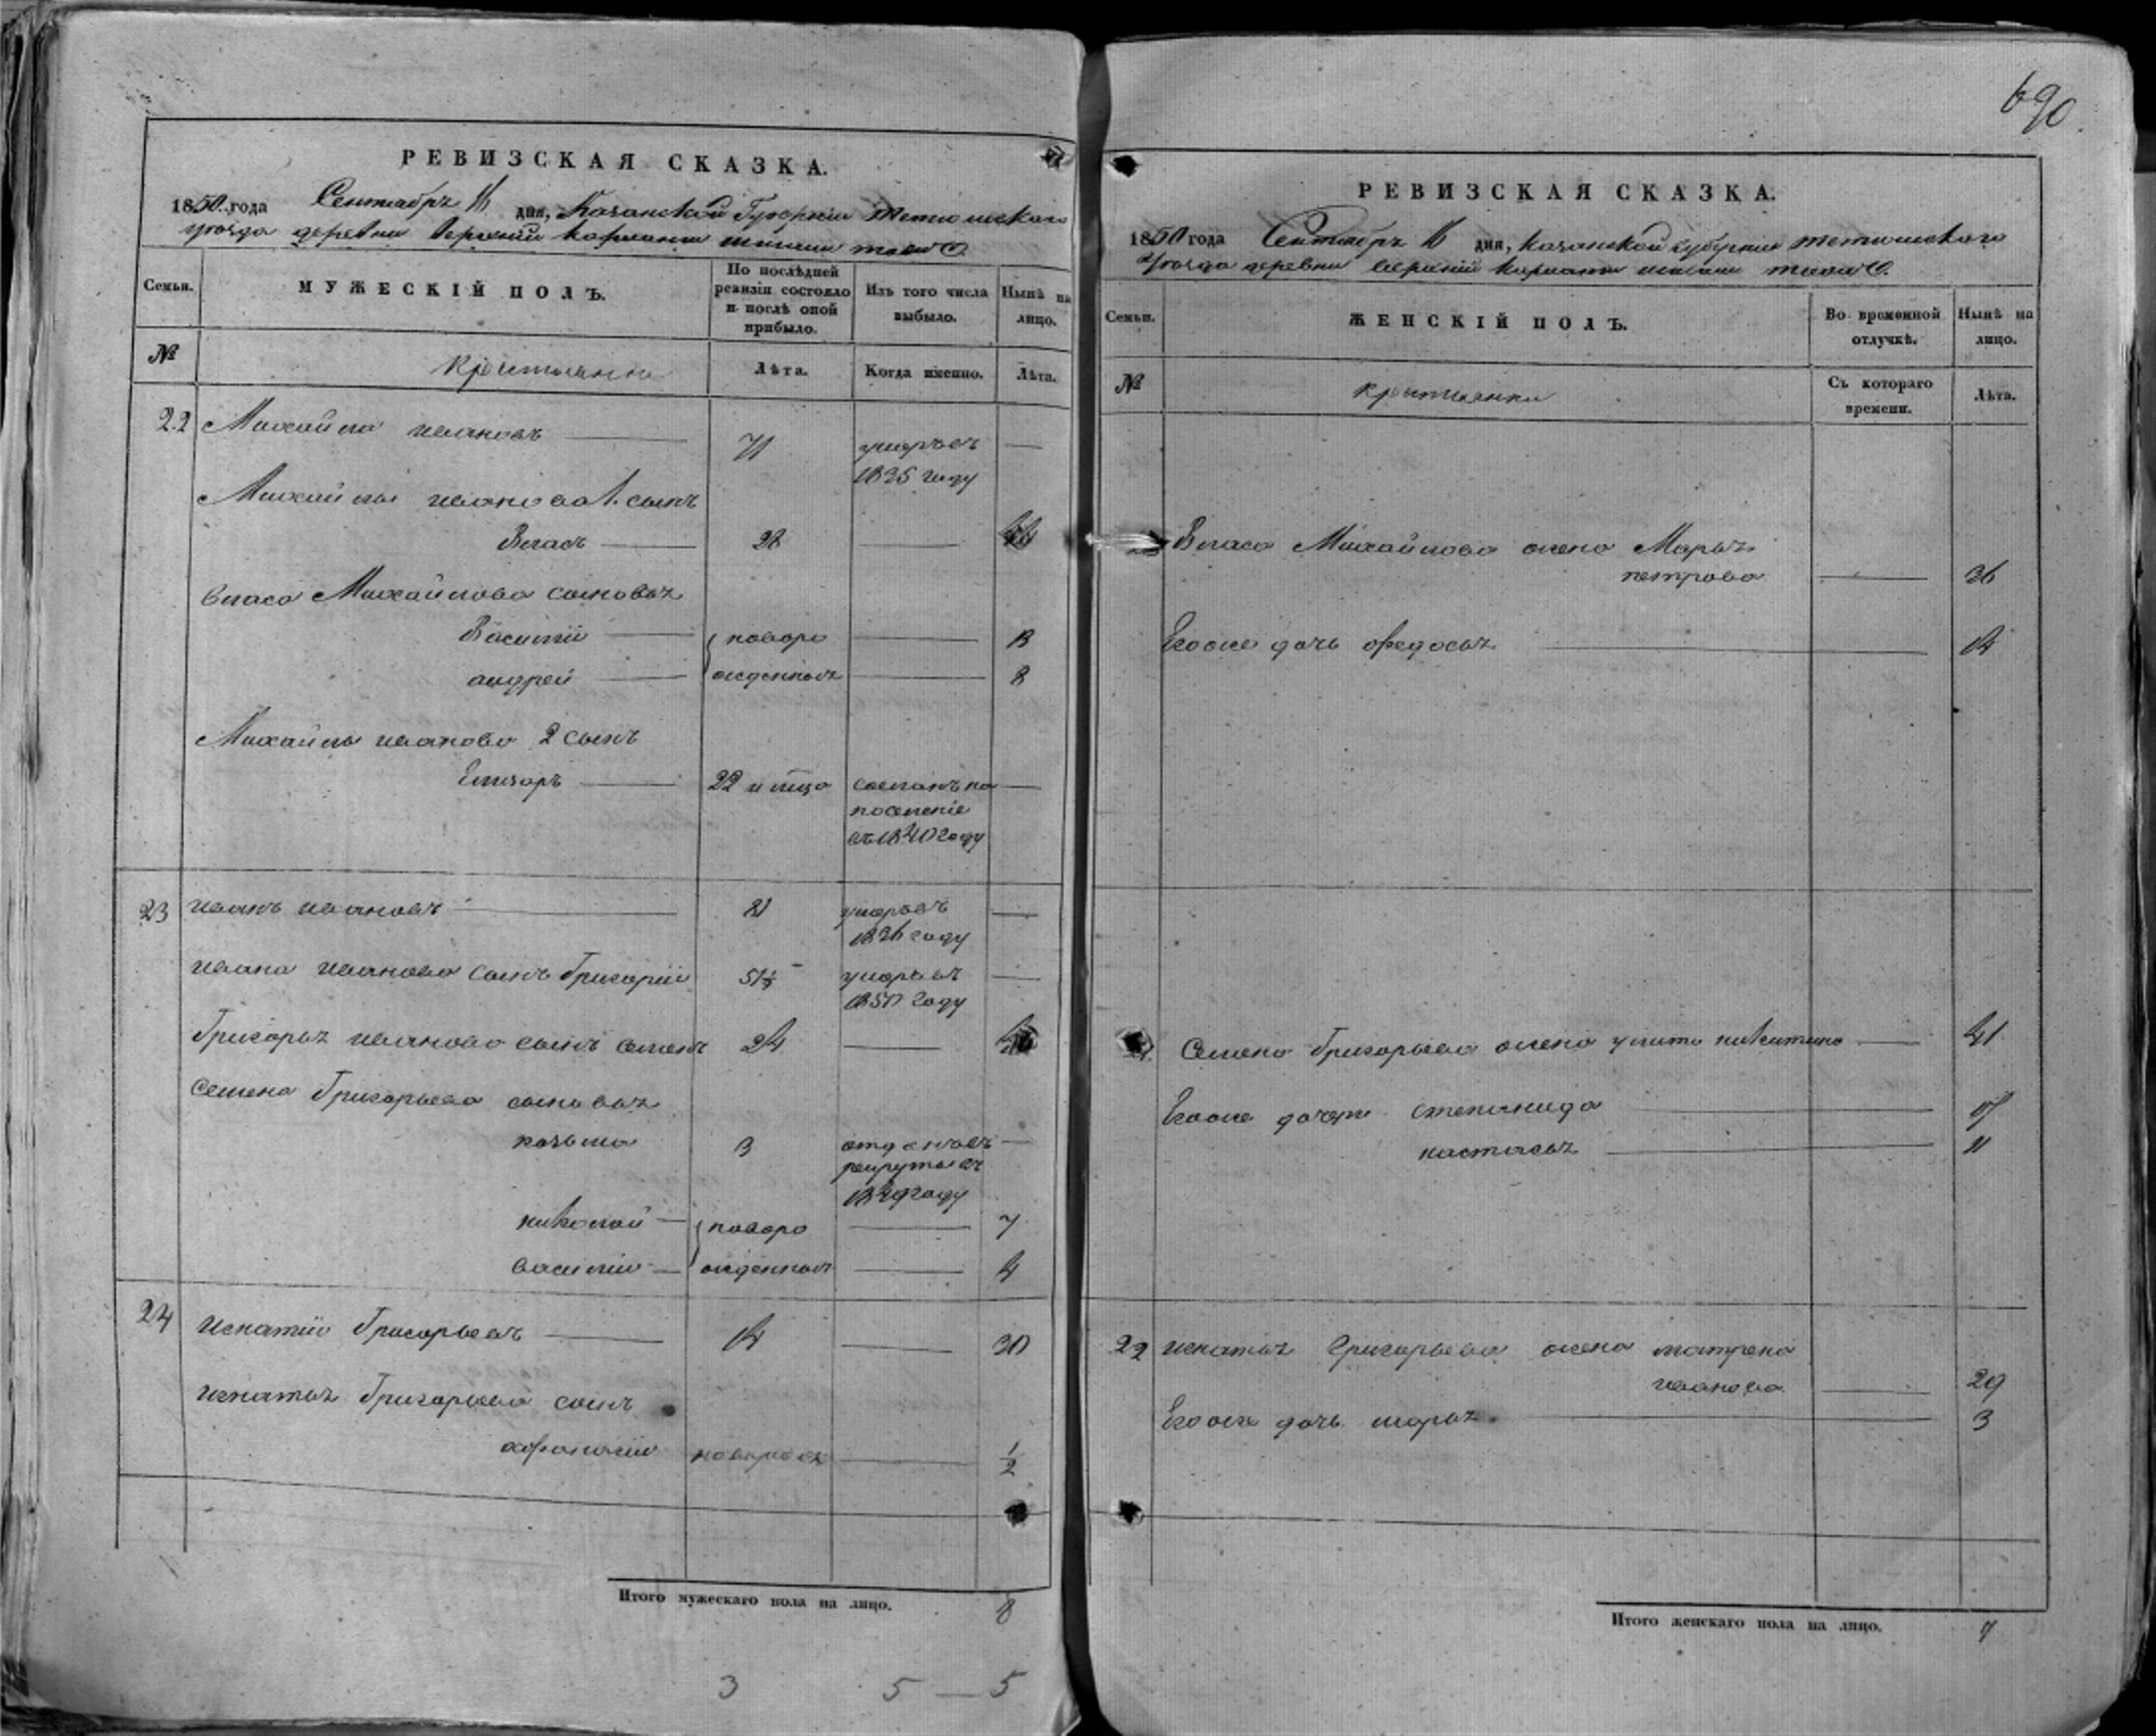 690
РЕВИЗСКАЯ СКАЗКА.
1850 года Сентябръ 16 дня, Казанской Губерніи тетюшскаго
уѣзда деревни верхній
Семьи.
МУЖЕСКІЙ ПОЛЪ.
По послѣдней ревизіи состояло и послѣ оной прибыло.
Изъ того числа выбыло.
Нынѣ на лицо.
№
крестьянѣ
Лѣта.
Когда именно.
Лѣта.
22 Михайла ивановъ 71 умеръ въ
1835 году
Михайлы иванова 1. сынъ
Власъ 28
власа Михайлова сыновья
Василій новоро 13
андрей жденныя 8
Михайлы иванова 2 сынъ
Елизаръ 22 сосланъ на
поселеніе
въ 1840 году
23 иванъ ивановъ 81 умеръ въ
1836 году
ивана иванова сынъ Григорій умеръ въ
1850 году
Григорья иванова сынъ семенъ 24
семена Григорьева сыновья
козьма 3 отданъ въ
рекруты въ
1849 году
николай новоро 7
василій жденныя 4
24 игнатій Григорьевъ 14 30
игнатья Григорьева сынъ
афонасій новорож 1/2
Итого мужескаго пола на лицо. 8
3 5 — 5
РЕВИЗСКАЯ СКАЗКА.
1850 года Сентябръ 16 дня, казанской губерніи тетюшскаго
уѣзда деревни верхній
Семьи.
ЖЕНСКІЙ ПОЛЪ.
Во временной отлучкѣ.
Нынѣ на лицо.
№
крестьянки
Съ котораго времени.
Лѣта.
Власа Михайлова жена Марья
петрова 36
Егоже дочь офедосья 14
Семена Григорьева жена улита никитина 41
Егоже дочери степанида 17
настасья 11
22 игнатья Григорьева жена матрена
иванова 29
Егоже дочь марья 3
Итого женскаго пола на лицо. 7